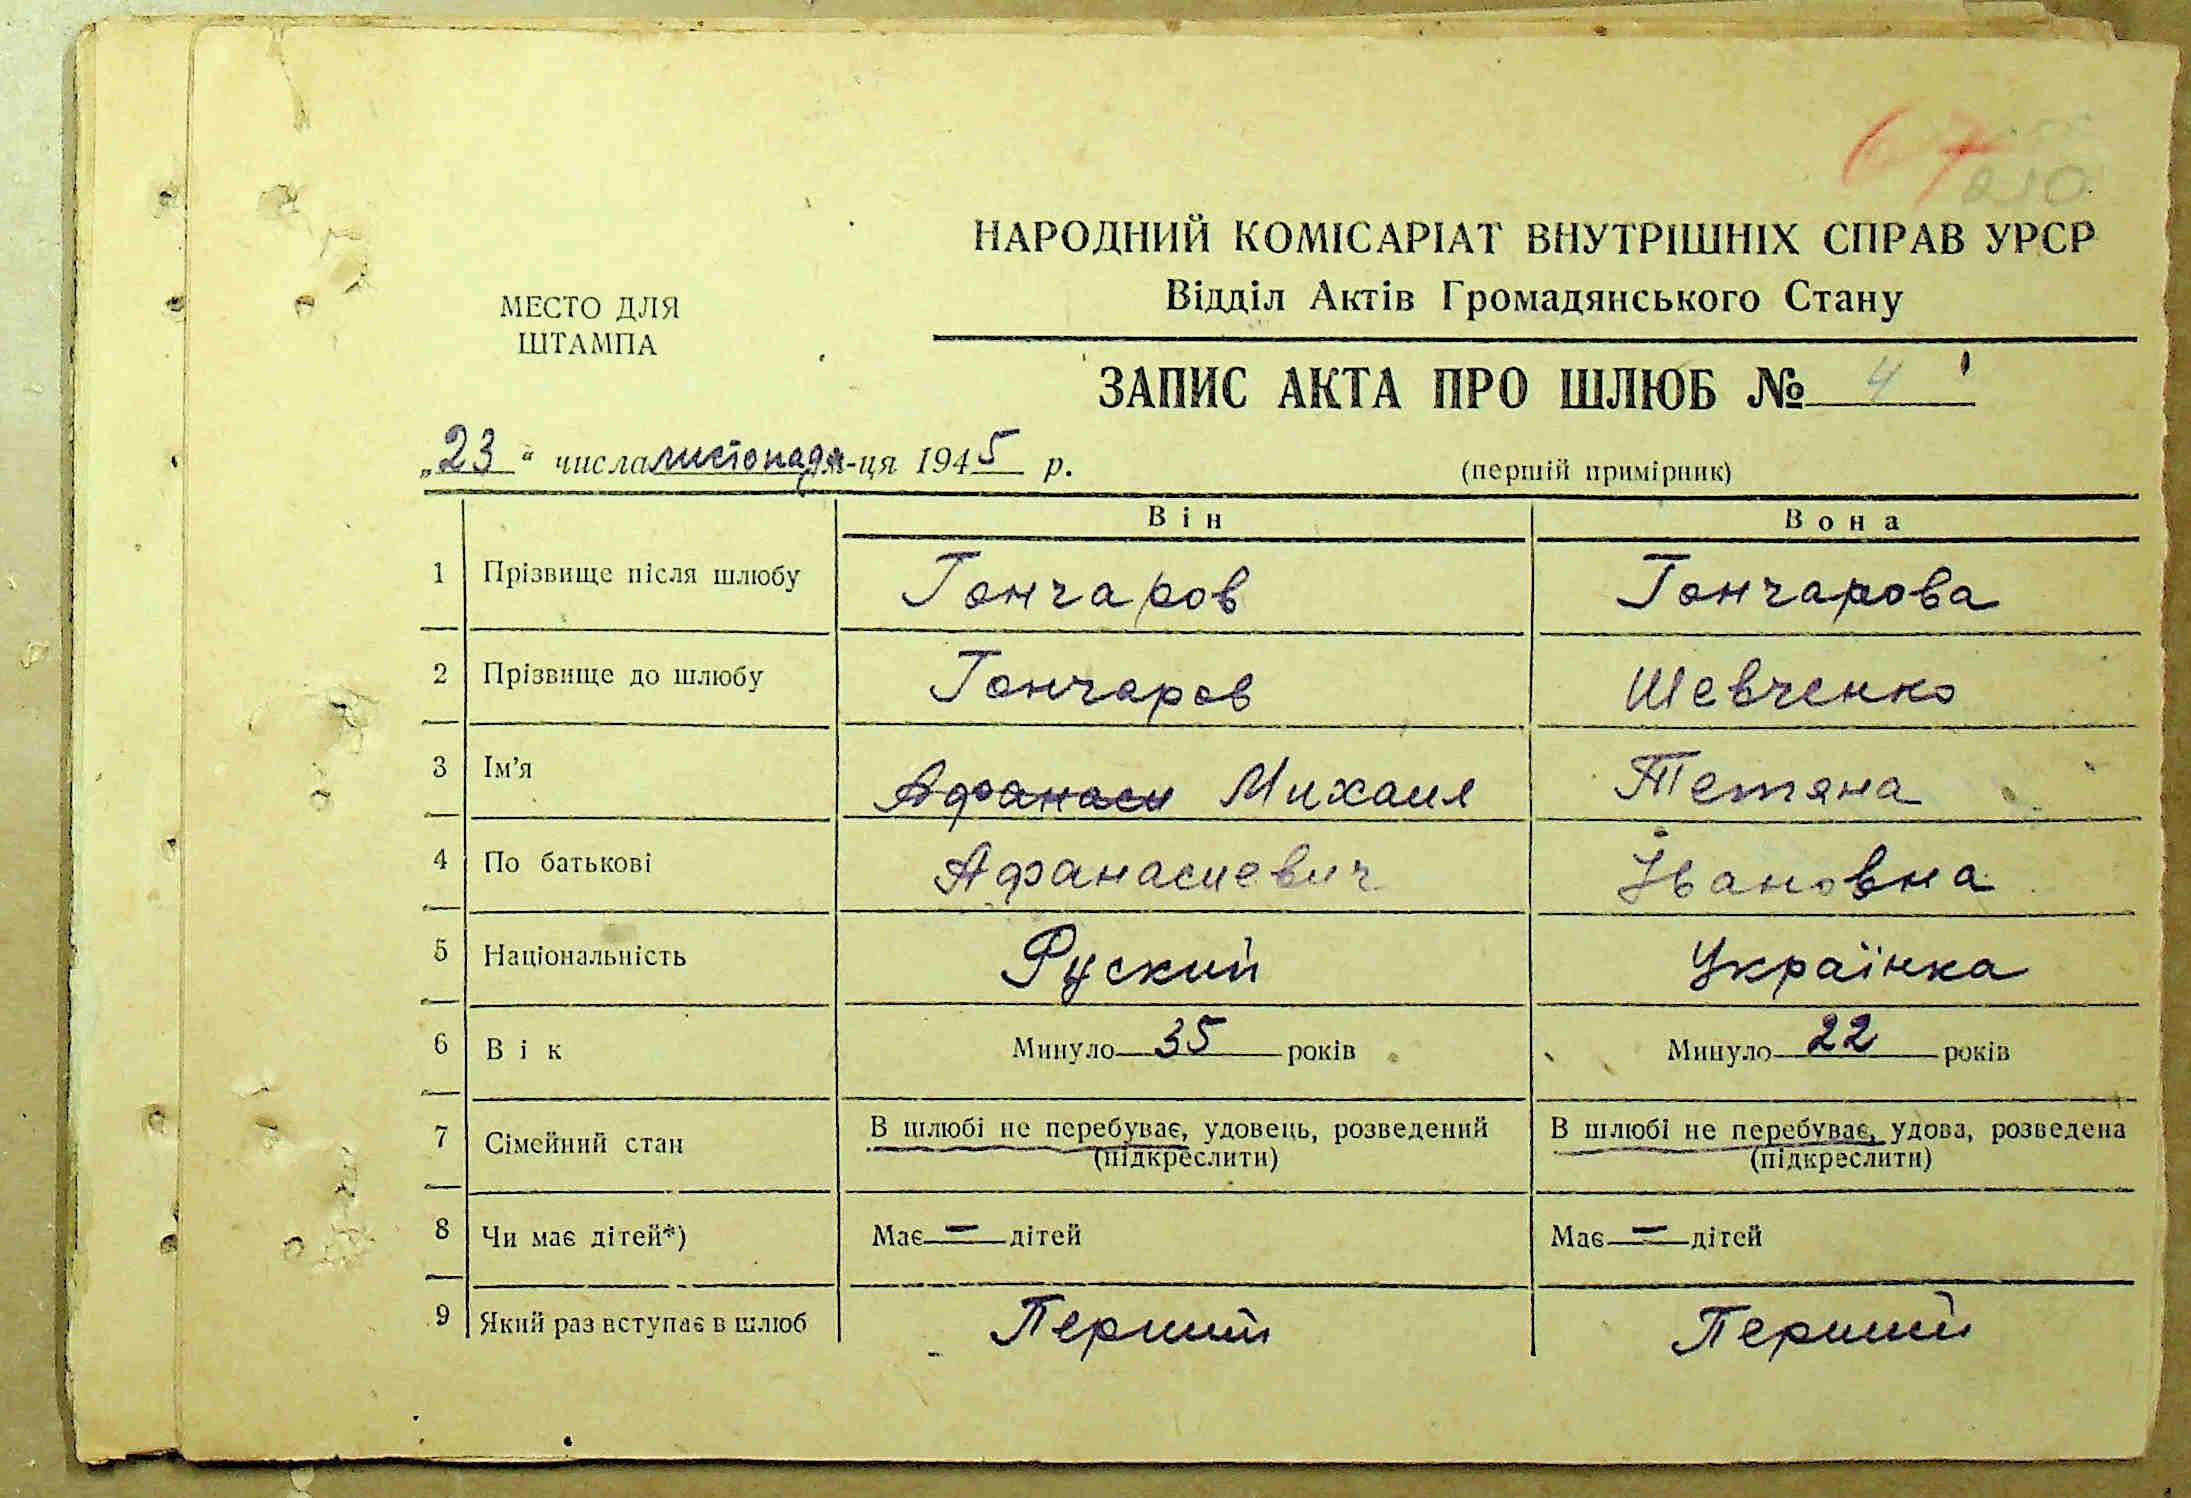 67
210
НАРОДНИЙ КОМІСАРІАТ ВНУТРІШНІХ СПРАВ УРСР
Відділ Актів Громадянського Стану
МЕСТО ДЛЯ
ШТАМПА
ЗАПИС АКТА ПРО ШЛЮБ № 4
„23“ числа листопада м-ця 1945 р.
(перший примірник)
Він Вона
1 Прізвище після шлюбу Гончаров Гончарова
2 Прізвище до шлюбу Гончаров Шевченко
3 Ім’я Афанаси Михаил Тетяна
4 По батькові Афанасиевич Івановна
5 Національність Руский Українка
6 Вік Минуло 35 років Минуло 22 років
7 Сімейний стан В шлюбі не перебуває, удовець, розведений В шлюбі не перебуває, удова, розведена
(підкреслити) (підкреслити)
8 Чи має дітей*) Має — дітей Має — дітей
9 Який раз вступає в шлюб Перший Перший